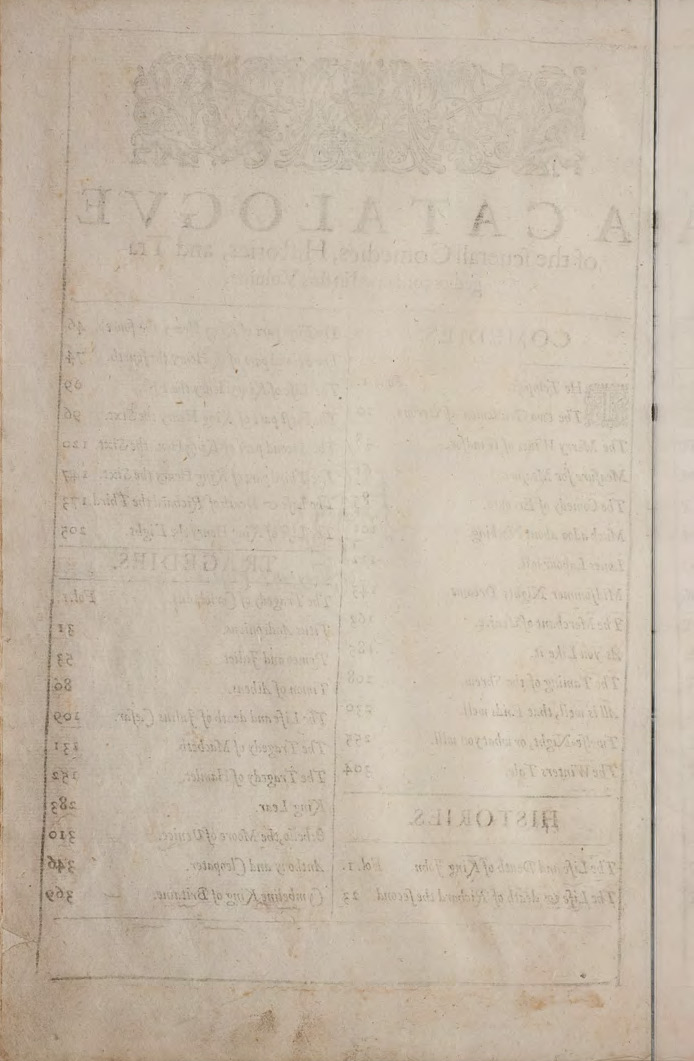 A CATALOGVE
of the seuerall Comedies, Histories, and Tra-
gedies contained in this Volume.
COMEDIES.
The Tempest.
The two Gentlemen of Verona. 20
The Merry Wiues of Windsor. 38
Measure for Measure. 61
The Comedy of Errours. 85
Much adoo about Nothing. 101
Loues Labour lost. 122
Midsommer Nights Dreame. 145
The Merchant of Venice. 163
As you Like it. 185
The Taming of the Shrew. 208
All is well, that Ends well. 230
Twelfe-Night, or what you will. 255
The Winters Tale. 304
HISTORIES.
The Life and Death of King John. Fol. 1.
The Life & death of Richard the second. 23
The First part of King Henry the fourth. 46
The Second part of K. Henry the fourth. 74
The Life of King Henry the Fift. 69
The First part of King Henry the Sixt. 96
The Second part of King Hen. the Sixt. 120
The Third part of King Henry the Sixt. 147
The Life & Death of Richard the Third. 173
The Life of King Henry the Eight. 205
TRAGEDIES.
The Tragedy of Coriolanus. Fol. 1.
Titus Andronicus. 31
Romeo and Juliet. 53
Timon of Athens. 80
The Life and death of Julius Cæsar. 109
The Tragedy of Macbeth. 131
The Tragedy of Hamlet. 152
King Lear. 283
Othello, the Moore of Venice. 310
Anthony and Cleopater. 346
Cymbeline King of Britaine. 369